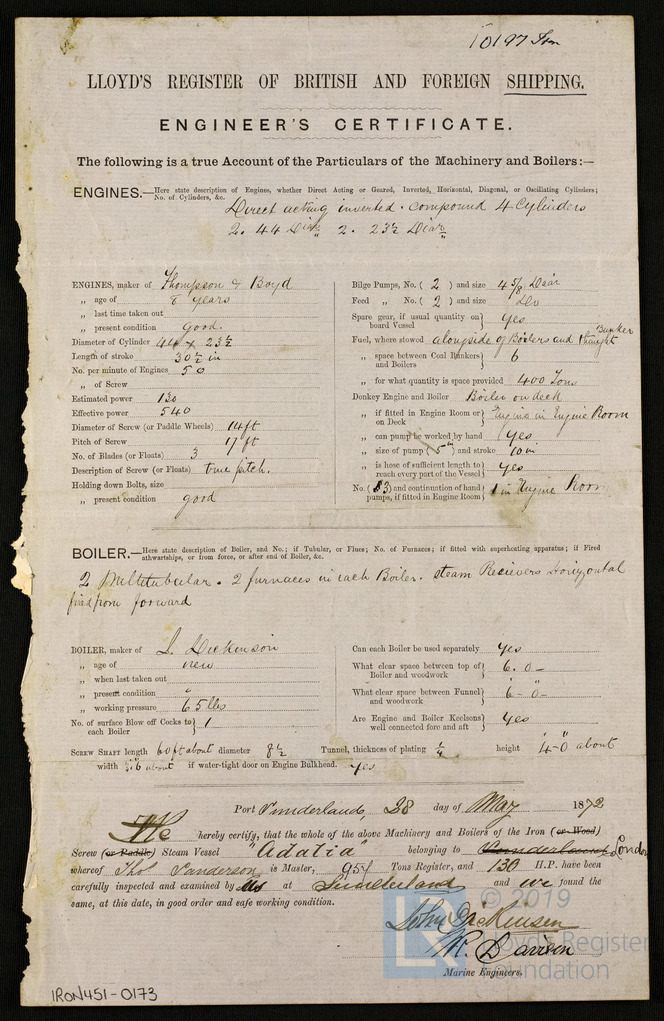 10197 Iron
LLOYD'S REGISTER OF BRITISH AND FOREIGN SHIPPING.
ENGINEER'S CERTIFICATE.
The following is a true Account of the Particulars of the Machinery and Boilers:—
ENGINES.—Here state description of Engines, whether Direct Acting or Geared, Inverted, Horizontal, Diagonal, or Oscillating Cylinders;
No. of Cylinders, &c.
Direct acting inverted. compound 4 Cylinders
2. 44 Diar 2. 23½ Diar
ENGINES, maker of Thompson & Boyd
„ age of years
„ last time taken out
„ present condition good.
Diameter of Cylinder 44 x 23½
Length of stroke 30½ in
No. per minute of Engines 50
„ of Screw
Estimated power 130
Effective power 540
Diameter of Screw (or Paddle Wheels) 14ft
Pitch of Screw 17 ft
No. of Blades (or Floats) 3
Description of Screw (or Floats) true pitch.
Holding down Bolts, size
„ present condition good
Bilge Pumps, No. ( 2 ) and size 4 5/8 Diar
Feed „ No. ( 2 ) and size Do
Spare gear, if usual quantity on board Vessel } yes
Fuel, where stowed alongside of Boilers and Bunker
„ space between Coal Bunkers and Boilers } 6
„ for what quantity is space provided 400 Tons
Donkey Engine and Boiler Boiler on deck
„ if fitted in Engine Room or on Deck } Engine in Engine Room
„ can pump be worked by hand yes
„ size of pump ( 5" ) and stroke 10 in
„ is hose of sufficient length to reach every part of the Vessel } yes
No. ( 3 ) and continuation of hand pumps, if fitted in Engine Room } 1 in Engine Room
BOILER.—Here state description of Boiler, and No.; if Tubular, or Flues; No. of Furnaces; if fitted with superheating apparatus; if Fired
athwartships, or from force, or after end of Boiler, &c.
2 Multitubular. 2 furnaces in each Boiler. steam Recievers Horizontal
fired from forward
BOILER, maker of J. Dickinson
„ age of new
„ when last taken out
„ present condition "
„ working pressure 65 lbs
No. of surface Blow off Cocks to each Boiler } 1
Can each Boiler be used separately yes
What clear space between top of Boiler and woodwork } 6. 0
What clear space between Funnel and woodwork } 6 - 0
Are Engine and Boiler Keelsons well connected fore and aft } yes
SCREW SHAFT length 60ft about diameter 8½ Tunnel, thickness of plating ¼ height 4-0 about
width 3.6 about if water-tight door on Engine Bulkhead. yes
Port Sunderland, 28 day of May 1872
We hereby certify, that the whole of the above Machinery and Boilers of the Iron (or Wood)
Screw (or Paddle) Steam Vessel "Adalia" belonging to Sunderland London
whereof Thos Sanderson is Master, 954 Tons Register, and 130 H.P. have been
carefully inspected and examined by us at Sunderland and we found the
same, at this date, in good order and safe working condition.
John Dickinson
R. Davison
Marine Engineers.
© 2019
LR
Lloyd's Register
Foundation
IRON451-0173